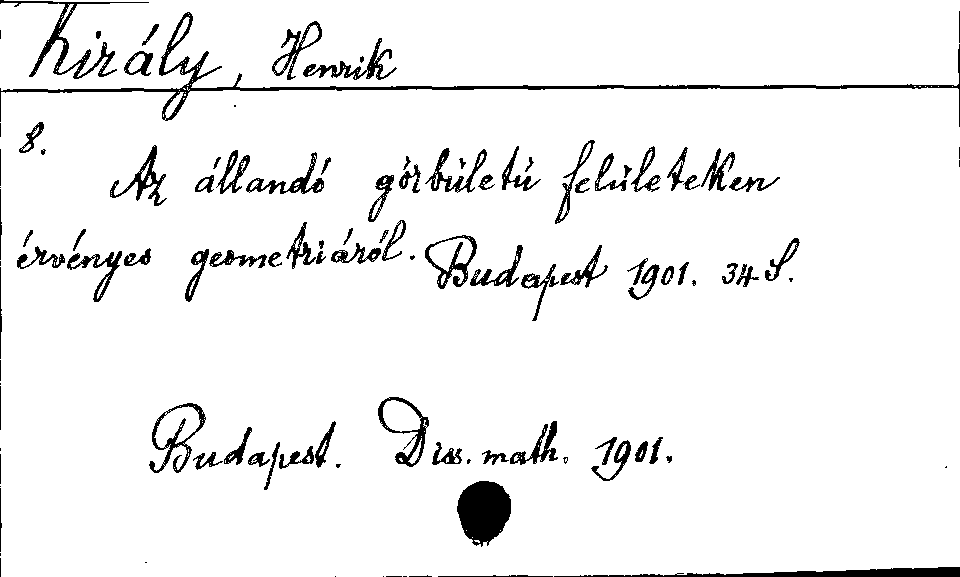 Király, Henrik
8.
Az állandó görbületű felületeken
érvényes geometriáról. Budapest 1901. 34 S.
Budapest. Diss. math. 1901.